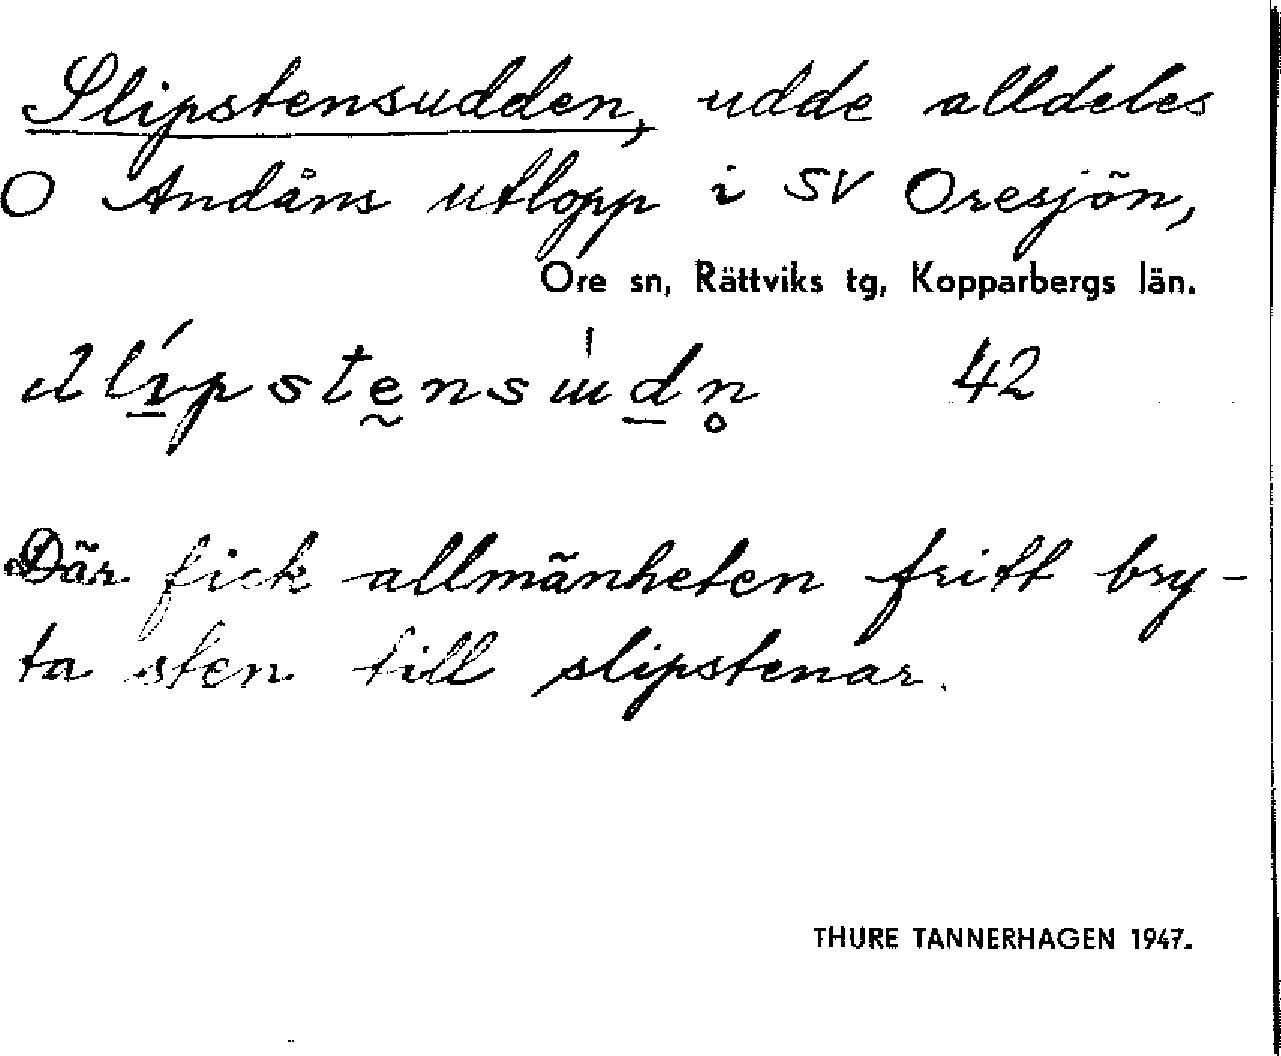 Slipstensudden, udde alldeles
O Andåns utlopp i SV Oresjön,
Ore sn, Rättviks tg, Kopparbergs län.
42
Där fick allmänheten fritt bry-
ta sten till slipstenar.
THURE TANNERHAGEN 1947.